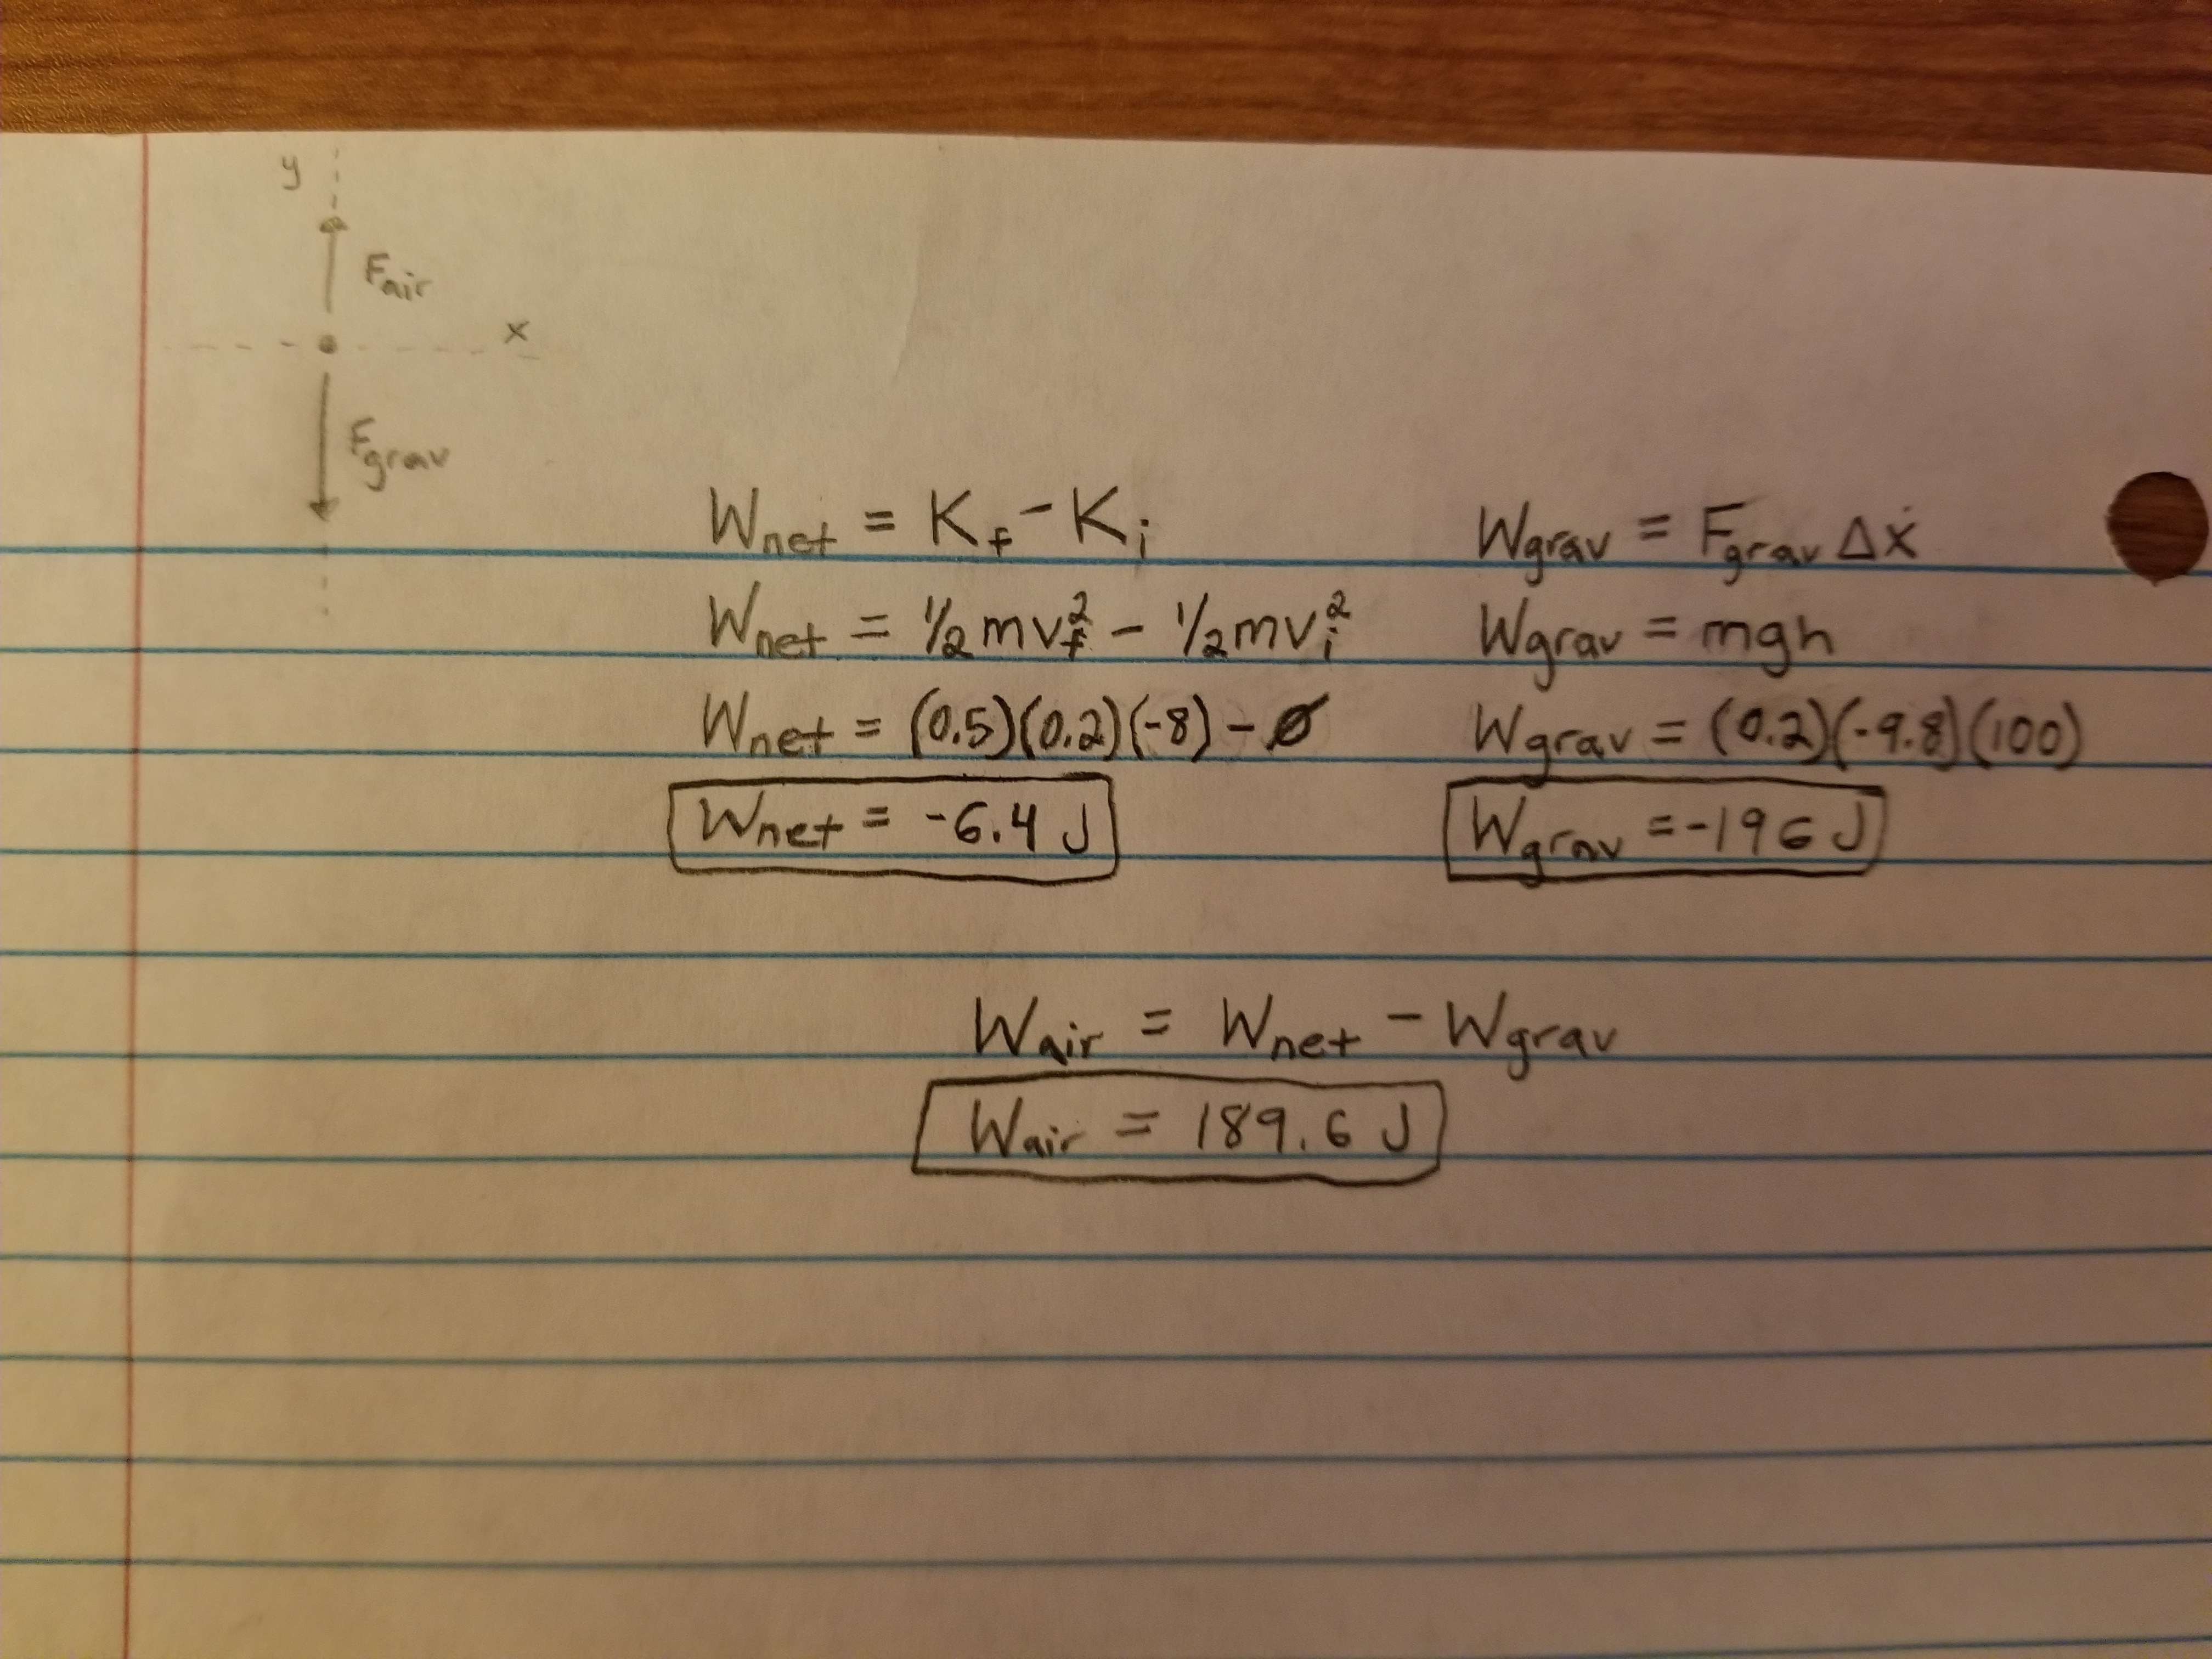 y
F_air
x
F_grav
W_net = K_f - K_i
W_net = 1/2 mv_f^2 - 1/2 mv_i^2
W_net = (0.5)(0.2)(-8) - Ø
W_net = -6.4 J
W_grav = F_grav Δx
W_grav = mgh
W_grav = (0.2)(-9.8)(100)
W_grav = -196 J
W_air = W_net - W_grav
W_air = 189.6 J